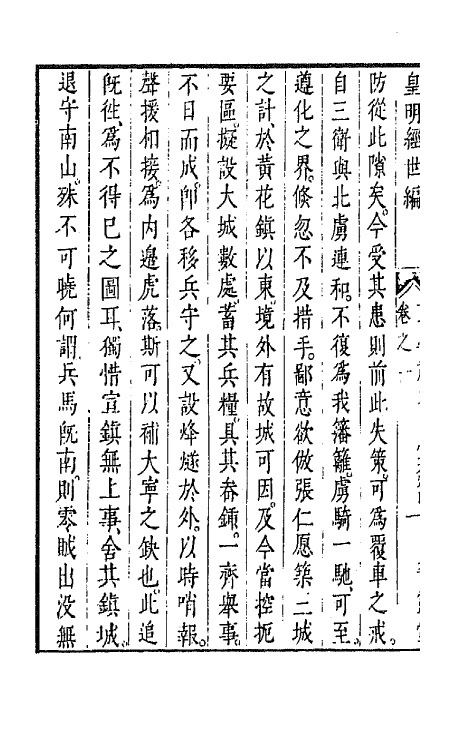 皇明經世編
卷之一
防從此隙矣。今受其患則前此失策。可爲覆車之戒。
自三衛與北虜連和。不復爲我籓籬。虜騎一馳。可至
遵化之界。倐忽不及措手。鄙意欲倣張仁愿築三城
之計。於黄花鎮以東。境外有故城可因。及今當控扼
要區。擬設大城數處。蓄其兵糧。具其畚鍤。一齊舉事。
不日而成。卽各移兵守之。又設烽燧於外。以時哨報。
聲援相接。爲内邉虎落。斯可以補大寧之缺也。此追
旣徃。爲不得已之圖耳。獨惜宣鎮無上事。舍其鎮城。
退守南山。殊不可曉何謂。兵馬旣南。則零賊出没無